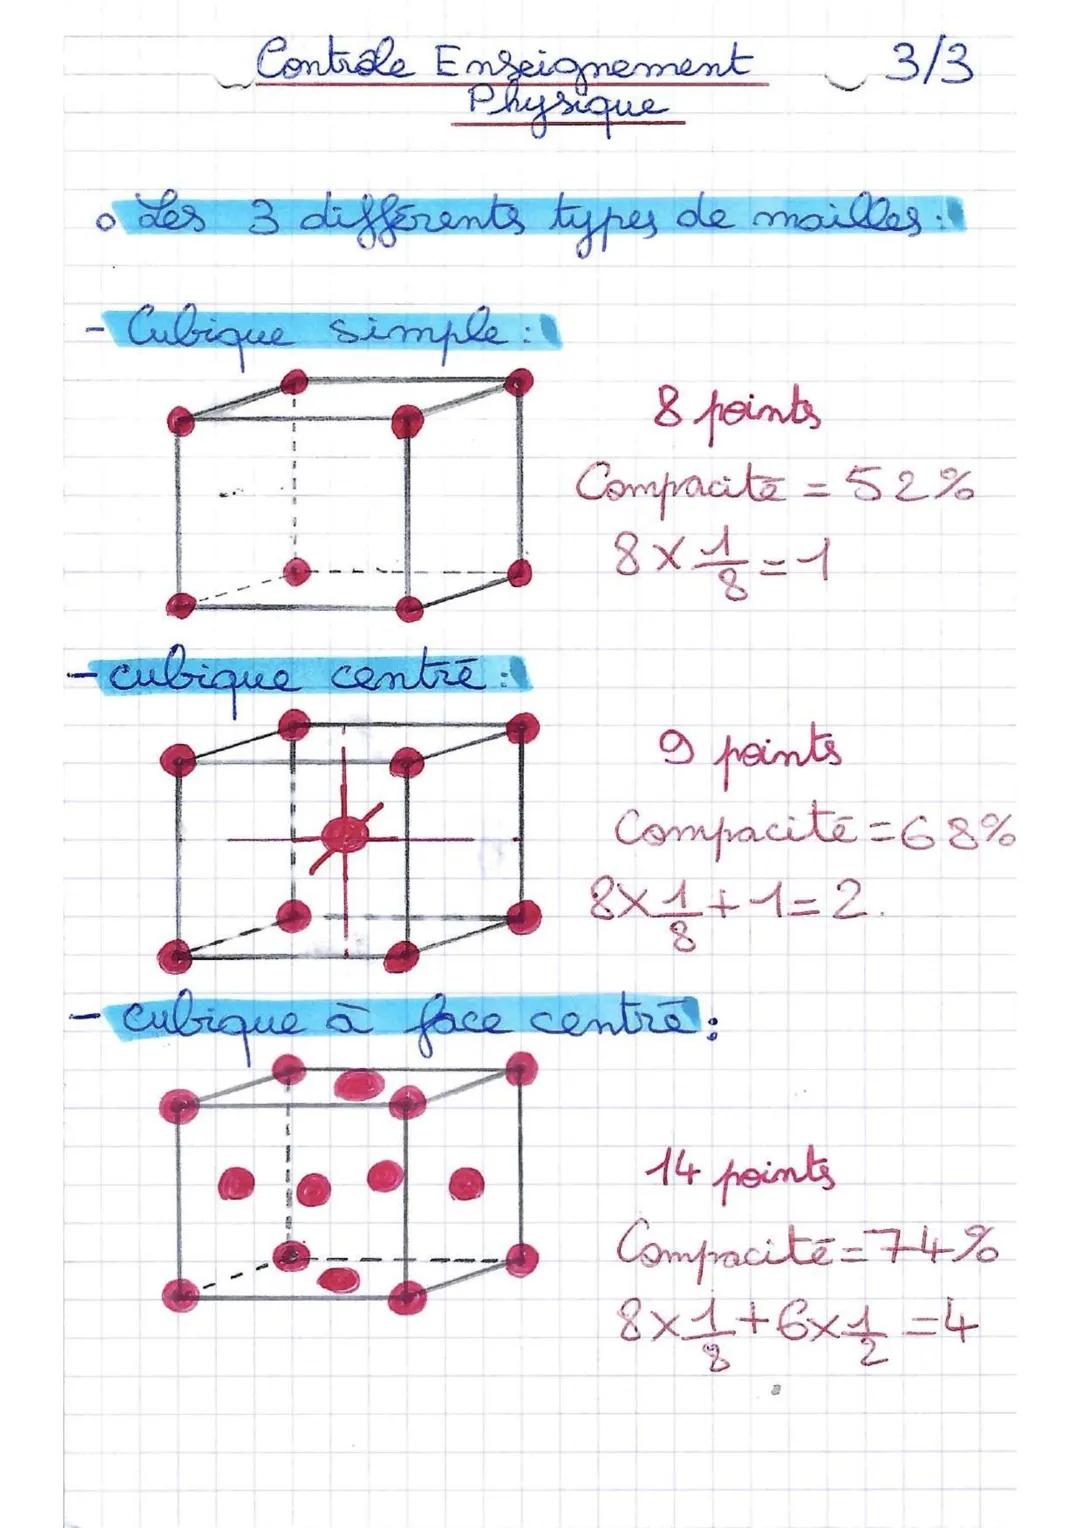 Contrôle Enseignement 3/3
Physique
o Les 3 différents types de mailles :
- Cubique simple :
8 points
Compacité = 52%
8 × 1/8 = 1
- cubique centré :
9 points
Compacité = 68%
8 × 1/8 + 1 = 2.
- cubique à face centré :
14 points
Compacité = 74%
8 × 1/8 + 6 × 1/2 = 4